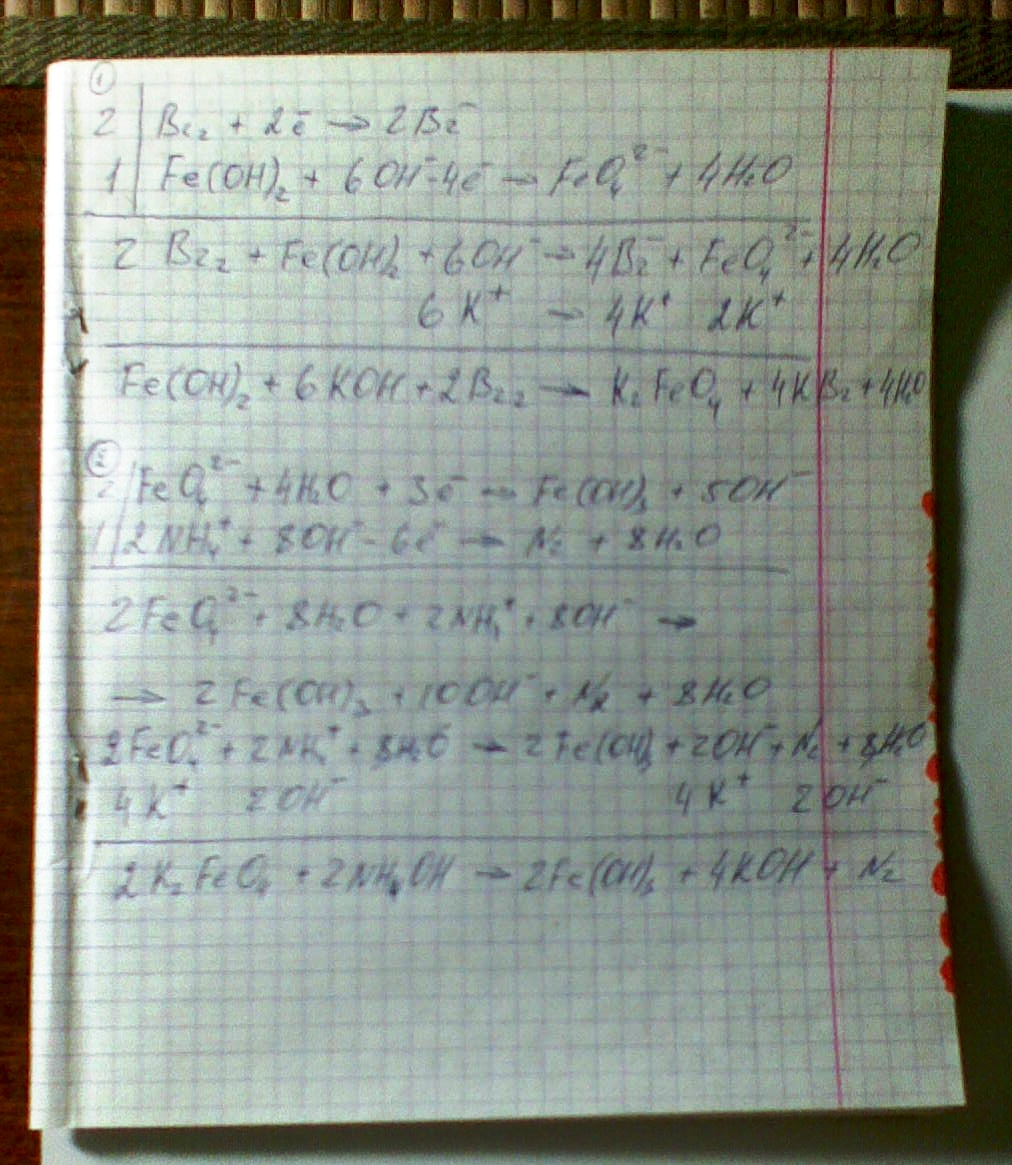 ①
2 | Br₂ + 2ē → 2Br⁻
1 | Fe(OH)₂ + 6OH⁻ - 4ē → FeO₄²⁻ + 4H₂O
2 Br₂ + Fe(OH)₂ + 6OH⁻ → 4Br⁻ + FeO₄²⁻ + 4H₂O
6K⁺ → 4K⁺ 2K⁺
Fe(OH)₂ + 6KOH + 2Br₂ → K₂FeO₄ + 4KBr + 4H₂O
②
2 | FeO₄²⁻ + 4H₂O + 3ē → Fe(OH)₃ + 5OH⁻
1 | 2NH₄⁺ + 8OH⁻ - 6ē → N₂ + 8H₂O
2FeO₄²⁻ + 8H₂O + 2NH₄⁺ + 8OH⁻ →
→ 2Fe(OH)₃ + 10OH⁻ + N₂ + 8H₂O
2FeO₄²⁻ + 2NH₄⁺ + 8H₂O → 2Fe(OH)₃ + 2OH⁻ + N₂ + 8H₂O
4K⁺ 2OH⁻ 4K⁺ 2OH⁻
2K₂FeO₄ + 2NH₄OH → 2Fe(OH)₃ + 4KOH + N₂